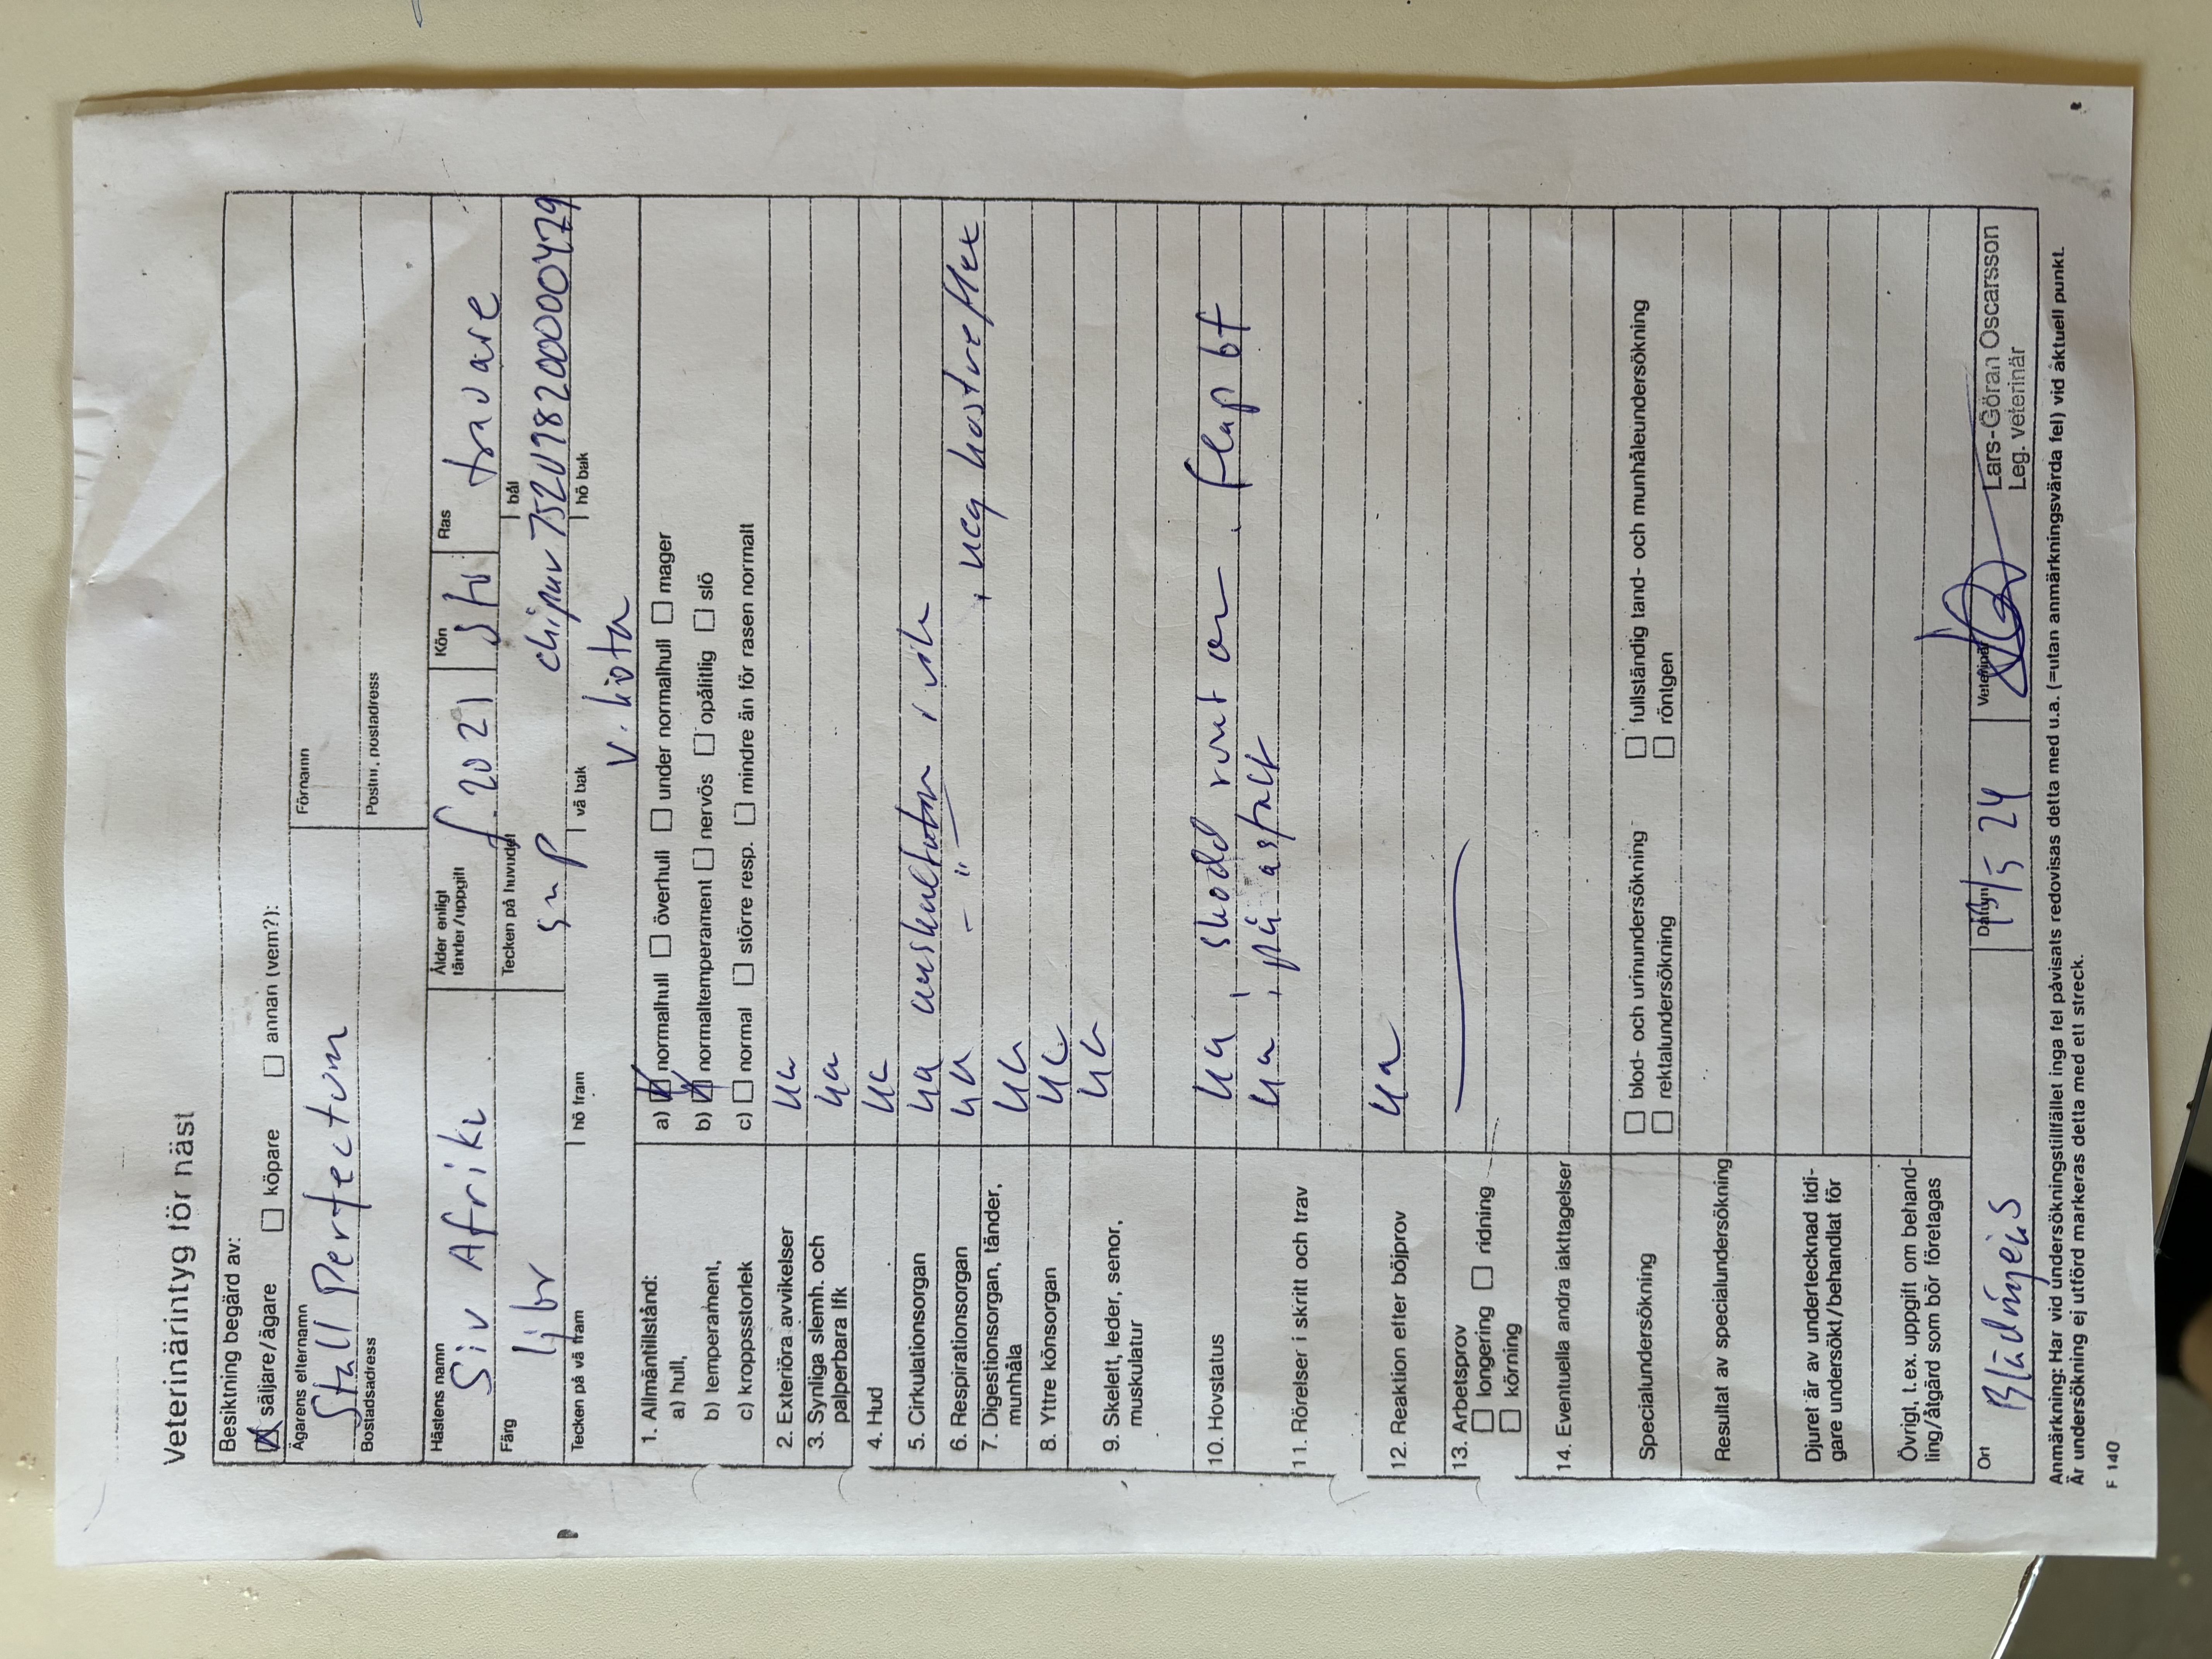 Veterinärintyg för häst
Besiktning begärd av:
☒ säljare/ägare ☐ köpare ☐ annan (vem?):
Ägarens efternamn Förnamn
Stall Perfectum
Bostadsadress Postnr, postadress
Hästens namn Ålder enligt tänder/uppgift Kön Ras
Siv Afriki f 2021 sto travare
Färg Tecken på huvudet bål
ljbr sn P chipnr 752098200000479
Tecken på vä fram hö fram vä bak hö bak
v. kota
1. Allmäntillstånd:
a) hull, a) ☒ normalhull ☐ överhull ☐ under normalhull ☐ mager
b) temperament, b) ☒ normaltemperament ☐ nervös ☐ opålitlig ☐ slö
c) kroppsstorlek c) ☐ normal ☐ större resp. ☐ mindre än för rasen normalt
2. Exteriöra avvikelser ua
3. Synliga slemh. och palperbara lfk ua
4. Hud ua
5. Cirkulationsorgan ua auskultation i vila
6. Respirationsorgan ua – " – , neg hostreflex
7. Digestionsorgan, tänder, munhåla ua
8. Yttre könsorgan ua
9. Skelett, leder, senor, muskulatur ua
10. Hovstatus ua, skodd runt om. flap bf
11. Rörelser i skritt och trav ua, på asfalt
12. Reaktion efter böjprov ua
13. Arbetsprov
☐ longering ☐ ridning
☐ körning
14. Eventuella andra iakttagelser
Specialundersökning ☐ blod- och urinundersökning ☐ fullständig tand- och munhåleundersökning
☐ rektalundersökning ☐ röntgen
Resultat av specialundersökning
Djuret är av undertecknad tidi-
gare undersökt/behandlat för
Övrigt, t.ex. uppgift om behand-
ling/åtgärd som bör företagas
Ort Datum Veterinär
/5 24 Lars-Göran Oscarsson
Leg. Veterinär
Anmärkning: Har vid undersökningstillfället inga fel påvisats redovisas detta med u.a. (=utan anmärkningsvärda fel) vid aktuell punkt.
Är undersökning ej utförd markeras detta med ett streck.
F 140